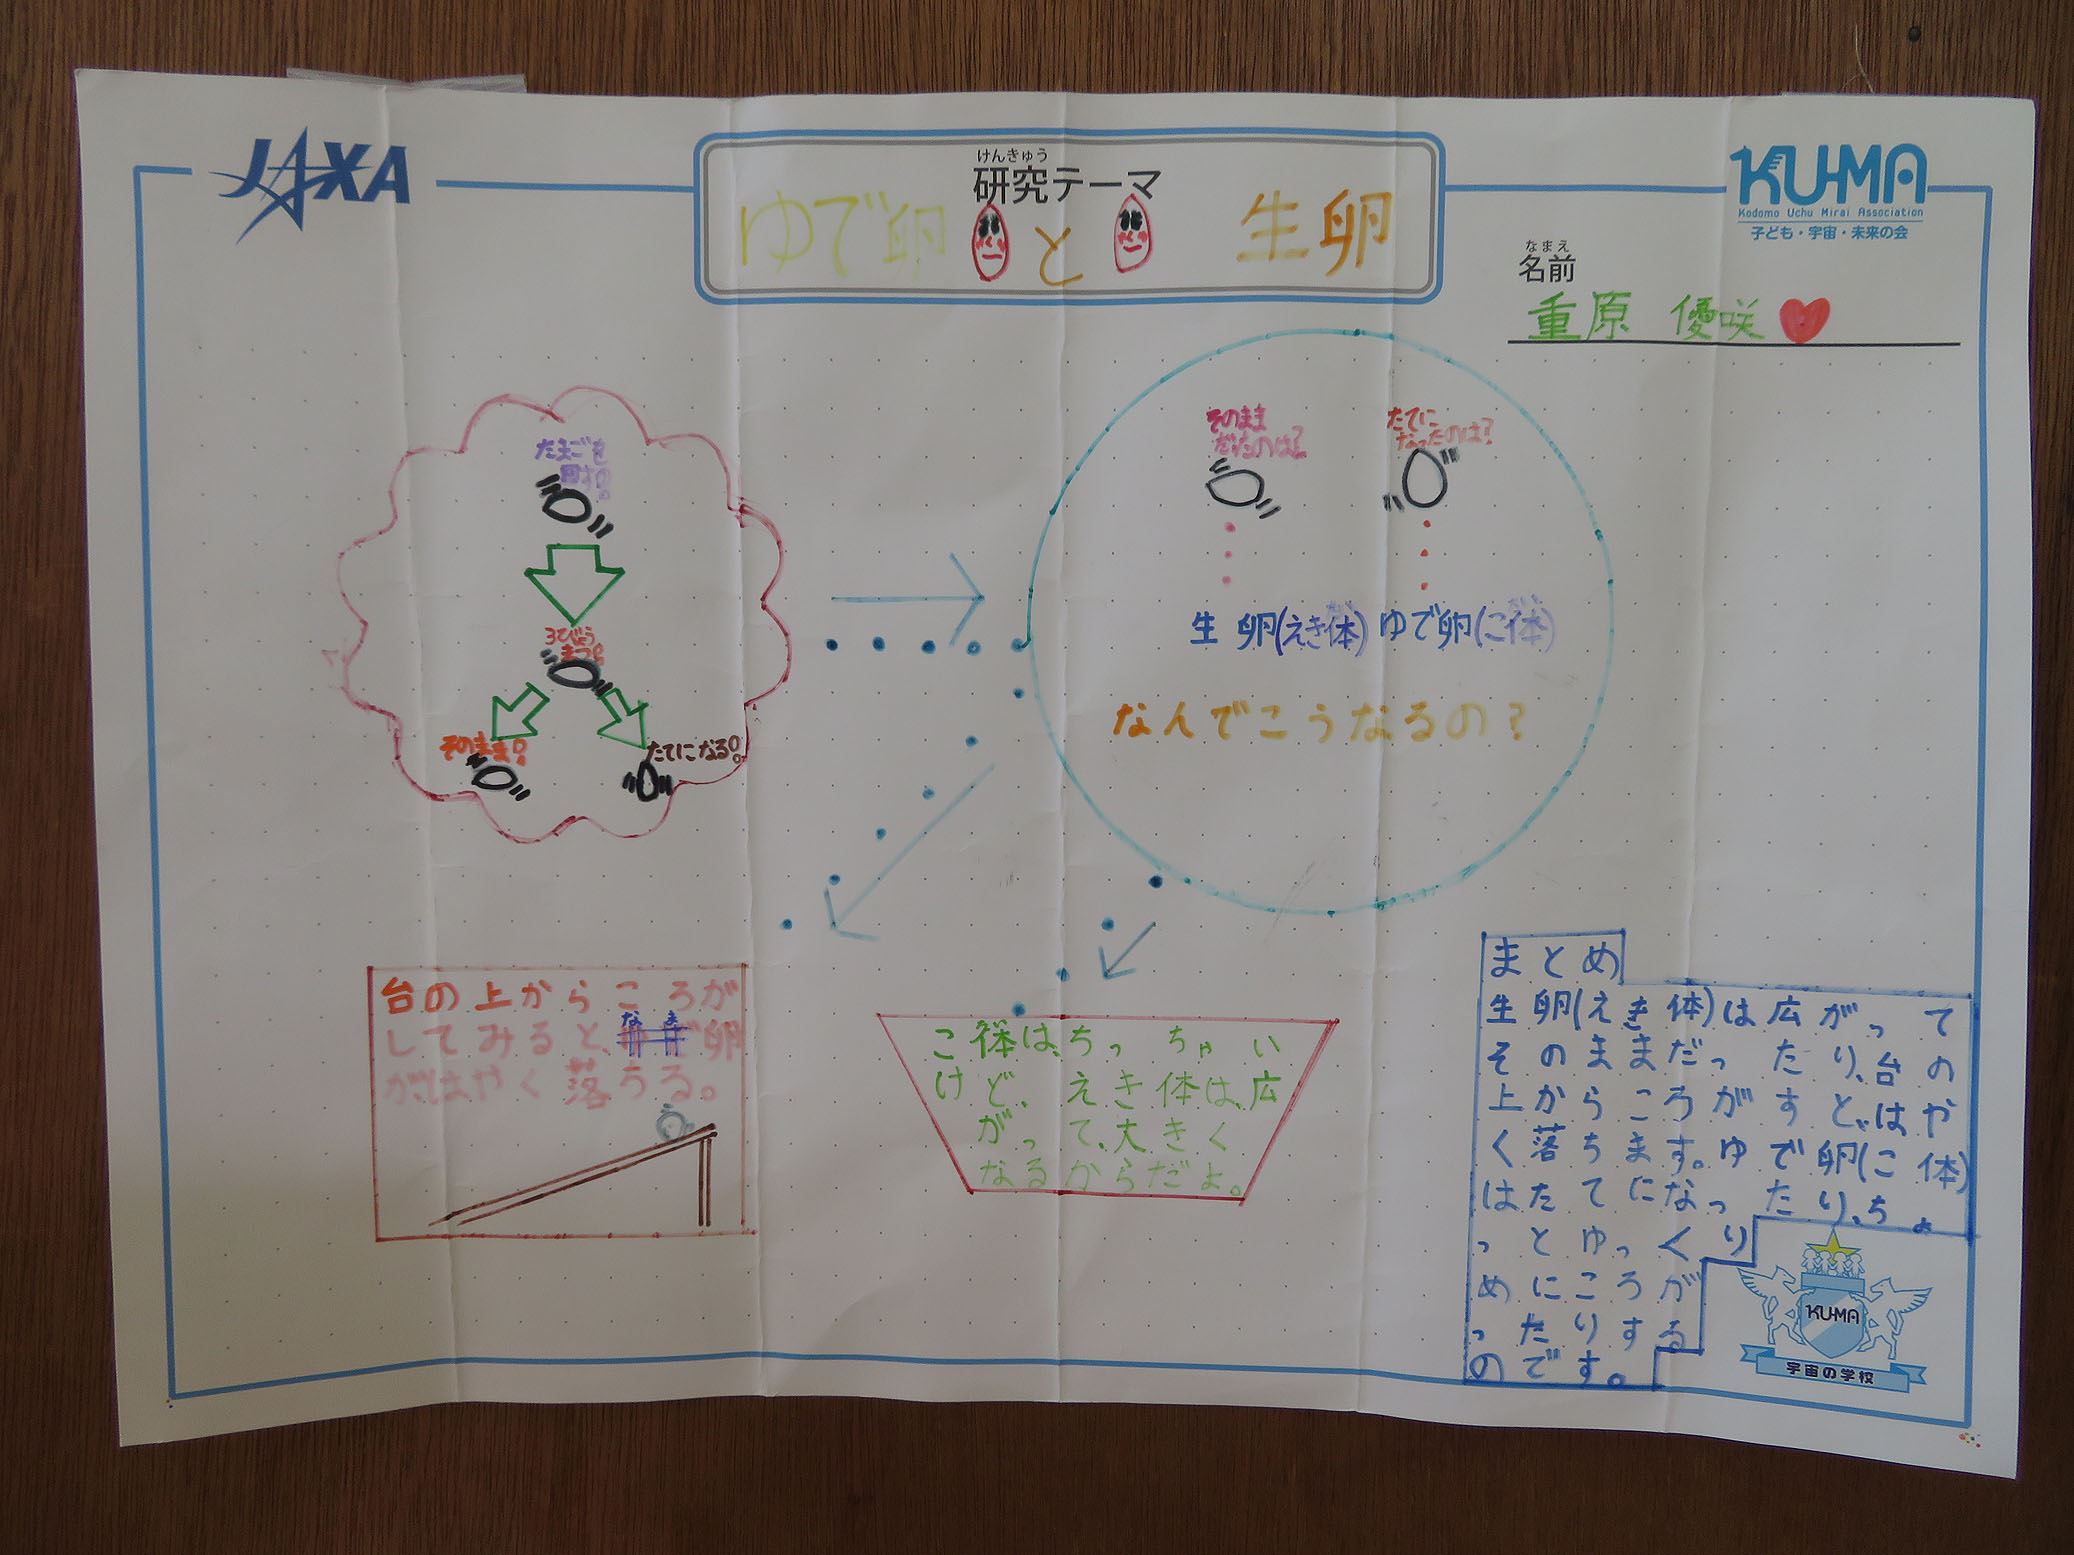 JAXA
けんきゅう
研究テーマ
ゆで卵 と 生卵
KU-MA
Kodomo Uchu Mirai Association
子ども・宇宙・未来の会
なまえ
名前
重原 優咲
たまごを
回す。
3びょう
まつ。
そのまま。
たてになる。
そのまま
だったのは?
たてに
なったのは?
生卵(えき体)ゆで卵(こ体)
なんでこうなるの?
台の上からころが
してみると、なま卵
が、はやく落ちる。
こ体は、ちっちゃい
けど、えき体は、広
がって、大きく
なるからだよ。
まとめ
生卵(えき体)は広がって
そのままだったり、台の
上からころがすと、はや
く落ちます。ゆで卵(こ体)
はたてになったり、ちょ
っとゆっくり
めにころが
ったりする
のです。
KU-MA
宇宙の学校